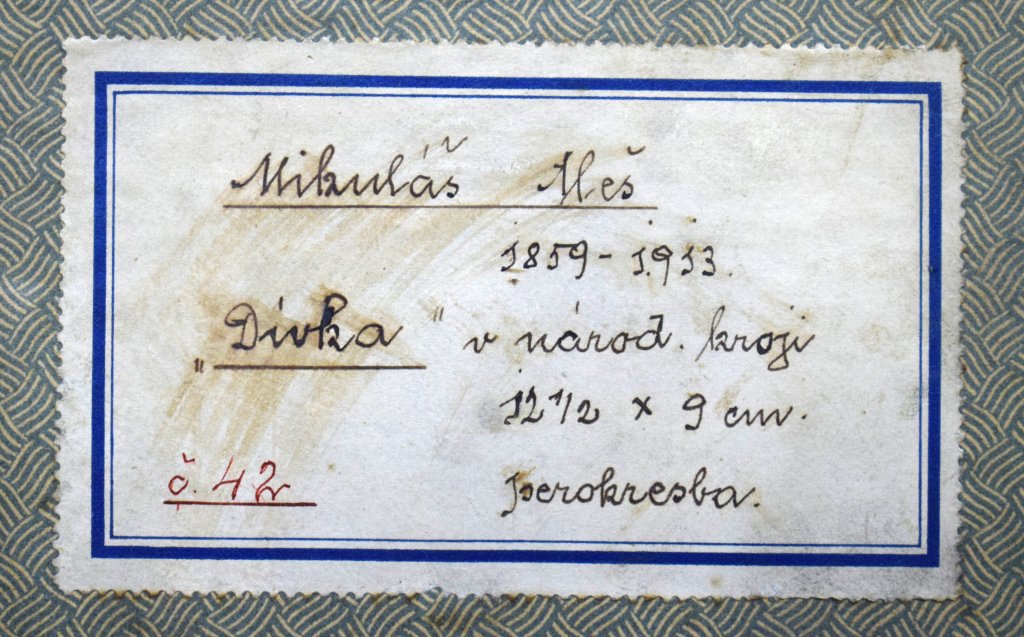 Mikuláš Aleš
1859 - 1913.
„Dívka" v národ. kroji
12 1/2 x 9 cm.
č. 42
perokresba.